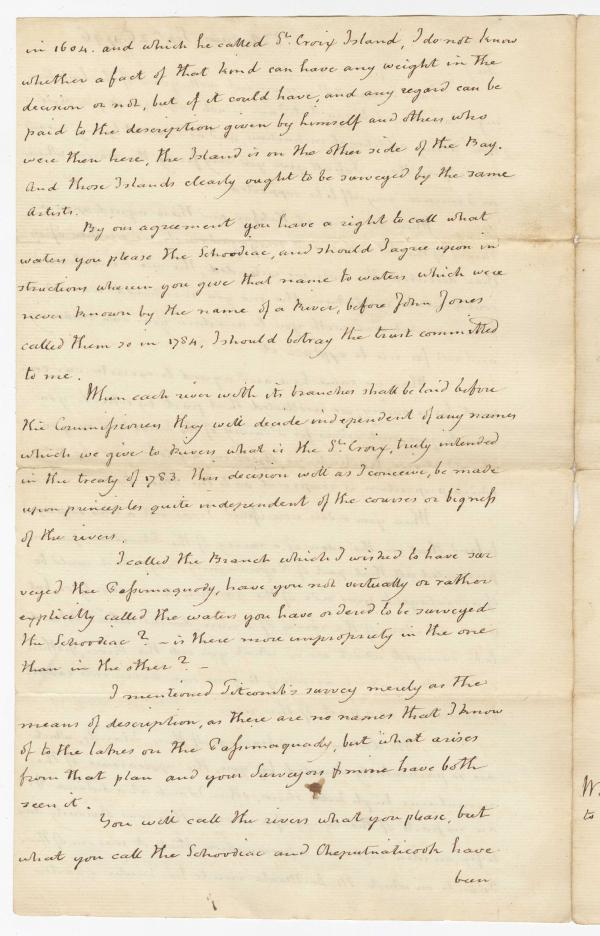 in 1604. and which he called St. Croix Island, I do not know
whether a fact of that kind can have any weight in the
decision or not, but if it could have, and any regard can be
paid to the description given by himself and others who
were then here, the Island is on the other side of the Bay.
And those Islands clearly ought to be surveyed by the same
Artists.
By our agreement you have a right to call what
waters you please the Schoodiac, and should I agree upon in
structions wherein you give that name to waters which were
never known by the name of a River, before John Jones
called them so in 1784, I should betray the trust committed
to me.
When each river with its branches shall be laid before
the Commissioners they will decide independent of any names
which we give to Rivers what is the St. Croix, truly intended
in the treaty of 1783. this decision will as I conceive, be made
upon principles quite independent of the courses or bigness
of the rivers.
I called the Branch which I wished to have sur
veyed the Passimaquody, have you not virtually or rather
explicitly called the waters you have ordered to be surveyed
the Schoodiac? – is there more impropriety in the one
than in the other? –
I mentioned Titcomb's survey merely as the
means of description, as there are no names that I know
of to the lakes on the Passimaquady, but what arises
from that plan and your Surveyors & mine have both
seen it.
You will call the rivers what you please, but
what you call the Schoodiac and Cheputnaticook have
been
W
to